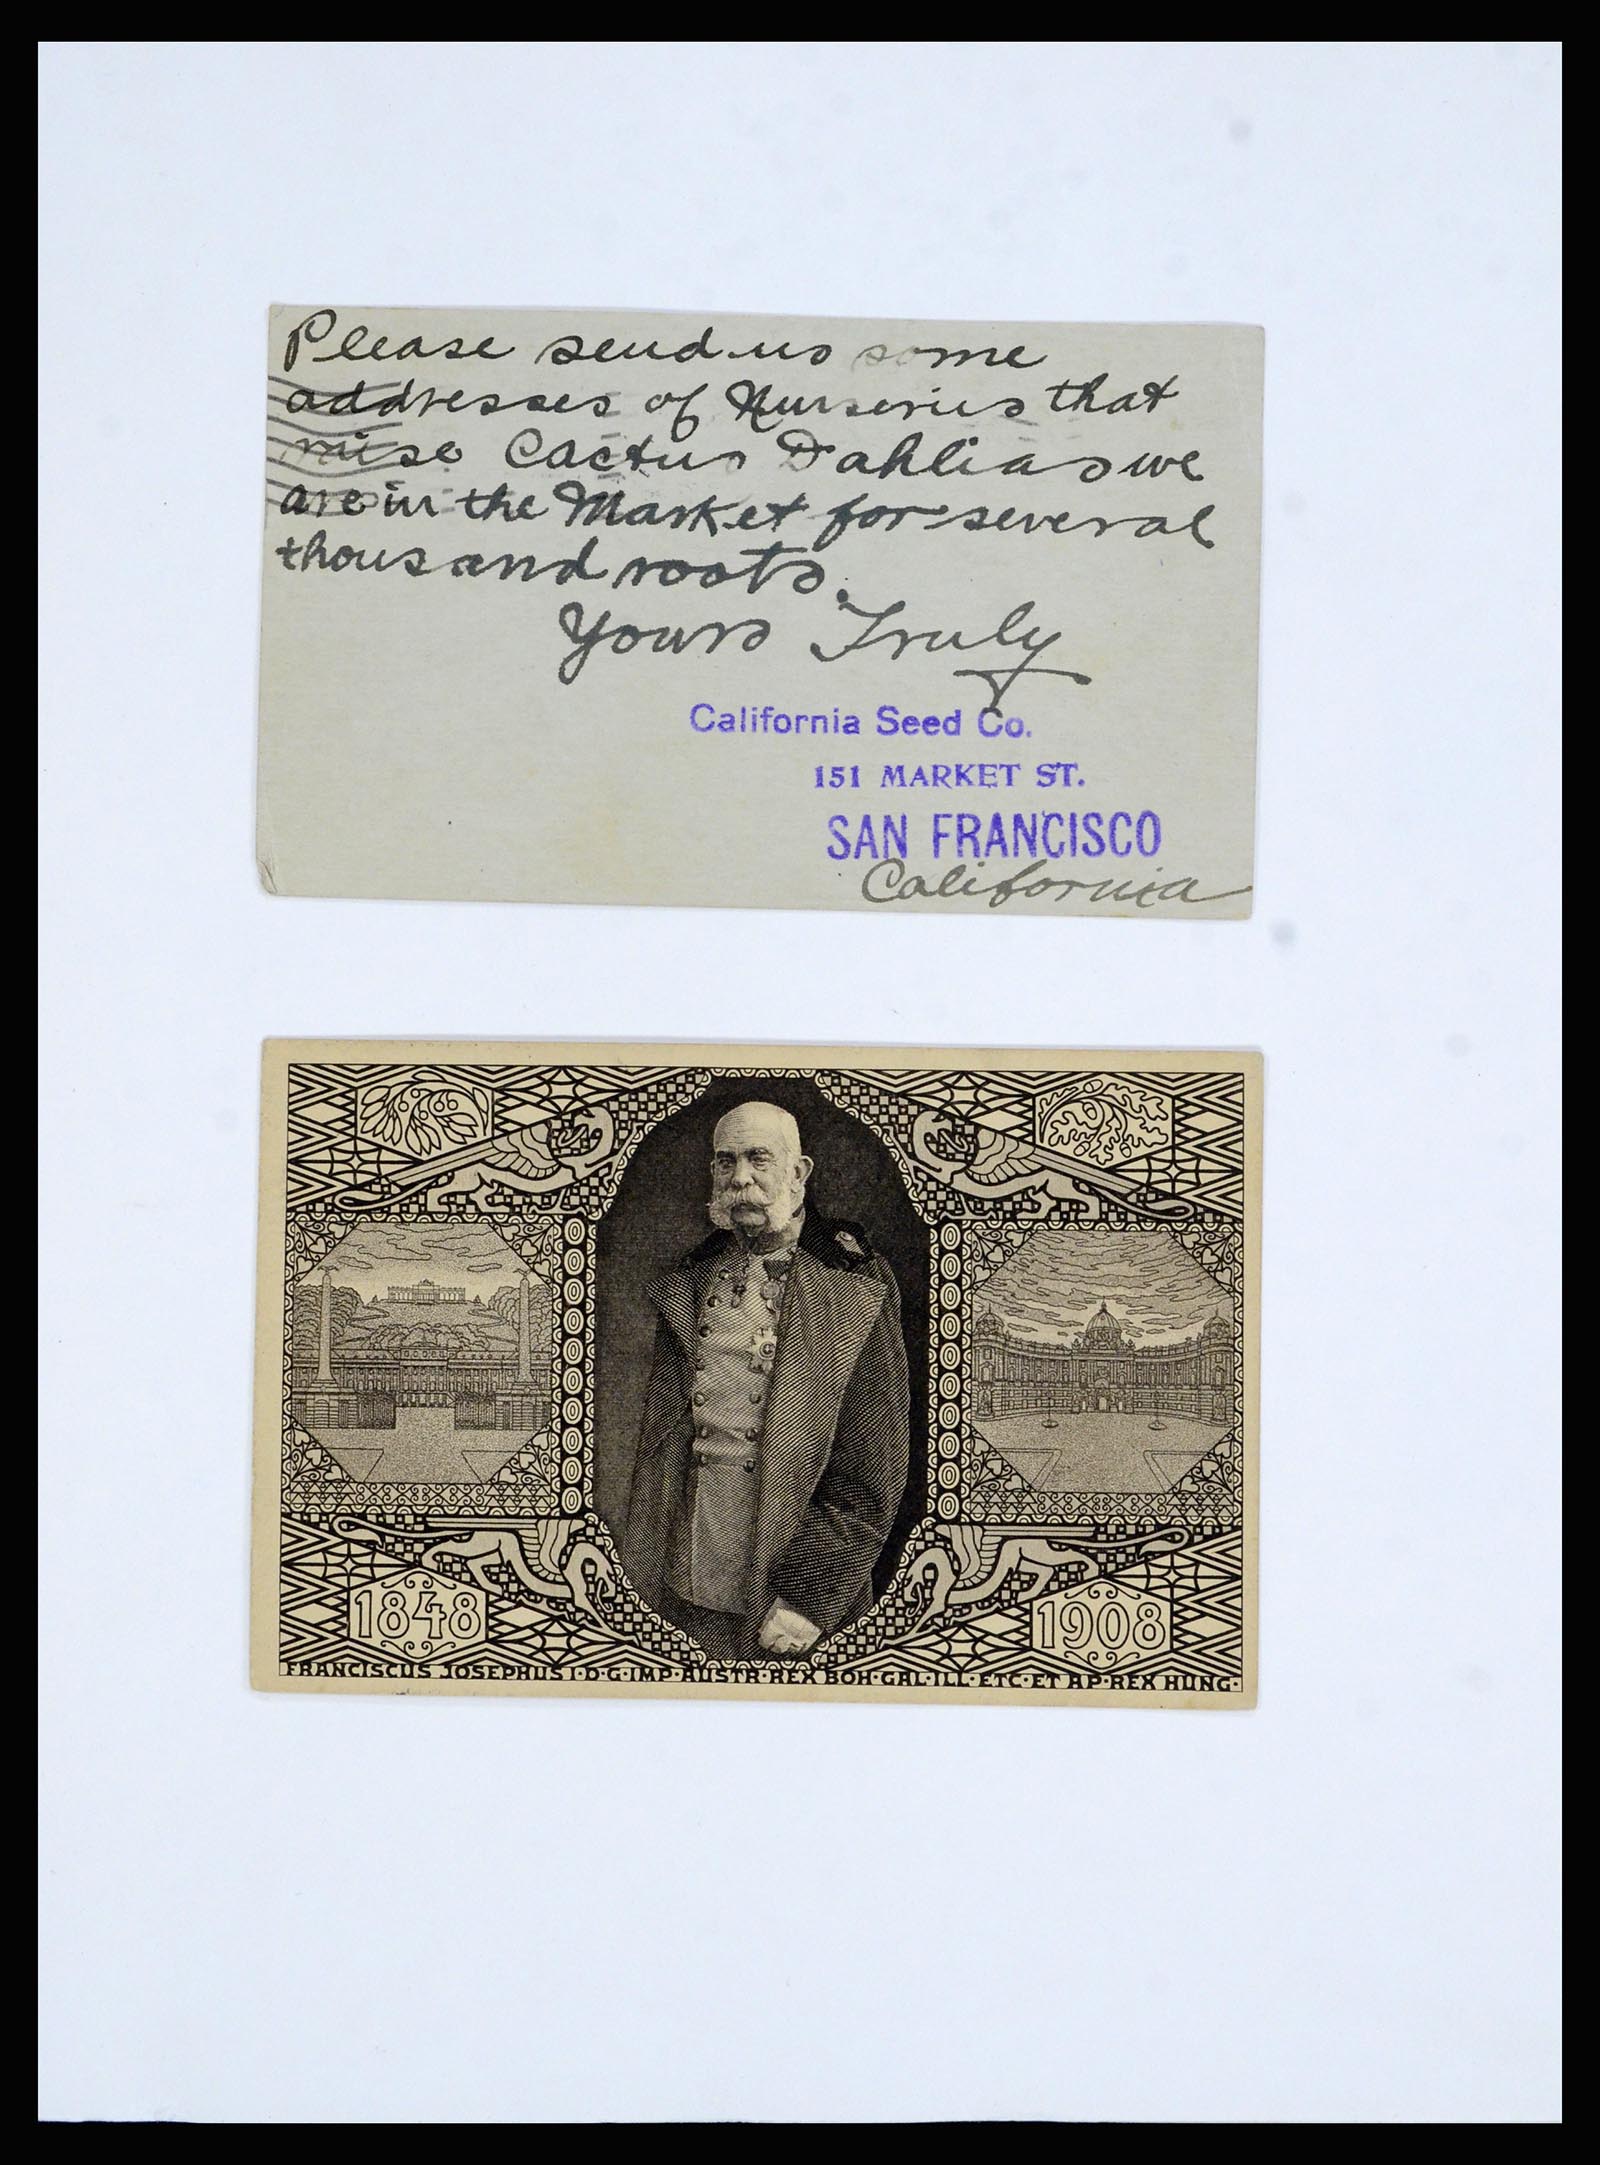 Please send us some
addresses of Nurseries that
raise Cactus Dahlias we
are in the Market for several
thousand roots.
Yours Truly
California Seed Co.
151 MARKET ST.
SAN FRANCISCO
California
1848
1908
FRANCISCUS JOSEPHUS I·D·G·IMP·AUSTR·REX BOH·GAL·ILL·ETC·ET AP·REX HUNG·